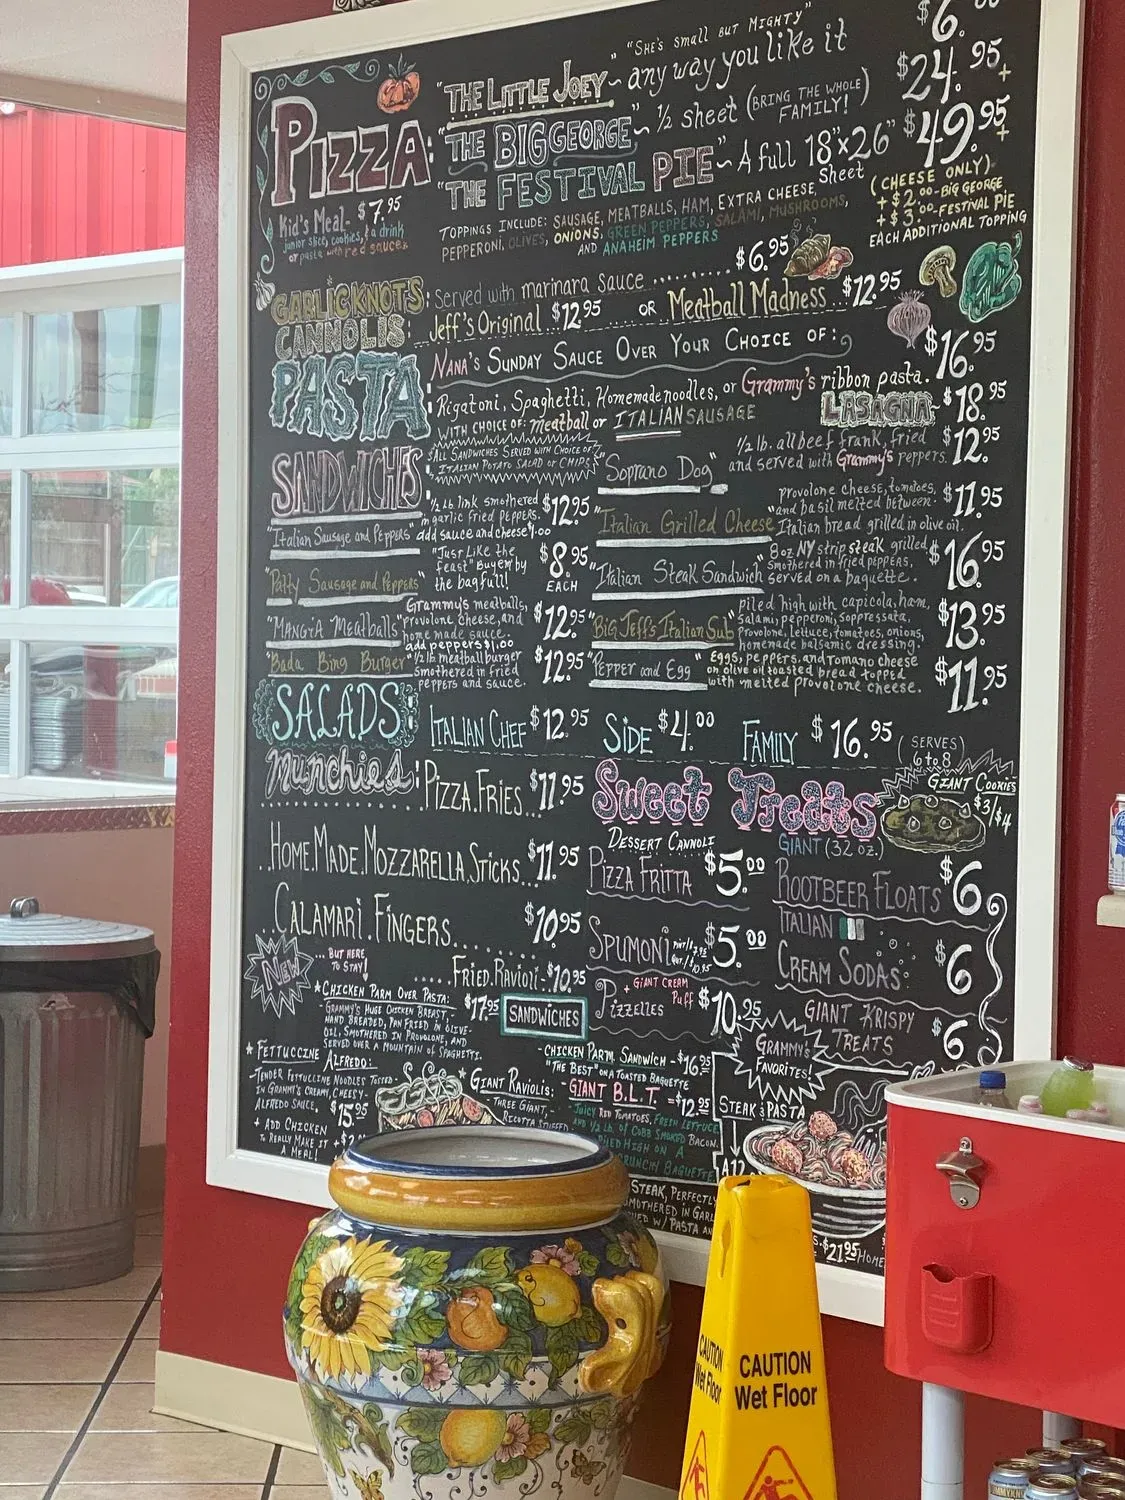 "SHE'S SMALL BUT MIGHTY"
PIZZA:
"THE LITTLE JOEY" ~ any way you like it $6.00
"THE BIG GEORGE" ~ 1/2 sheet (BRING THE WHOLE FAMILY!) $24.95+
"THE FESTIVAL PIE" ~ A full 18"x26" Sheet $49.95+
Kid's Meal - $7.95
junior slice, cookies, & a drink
or pasta with red sauce
TOPPINGS INCLUDE: SAUSAGE, MEATBALLS, HAM, EXTRA CHEESE,
PEPPERONI, OLIVES, ONIONS, GREEN PEPPERS, SALAMI, MUSHROOMS,
AND ANAHEIM PEPPERS
(CHEESE ONLY)
+$2.00-BIG GEORGE
+$3.00-FESTIVAL PIE
EACH ADDITIONAL TOPPING
GARLIC KNOTS: Served with marinara sauce ........ $6.95
CANNOLIS: Jeff's Original .. $12.95 OR Meatball Madness ... $12.95
PASTA: NANA'S SUNDAY SAUCE OVER YOUR CHOICE OF:
Rigatoni, Spaghetti, Homemade noodles, or Grammy's ribbon pasta. $16.95
WITH CHOICE OF: Meatball or ITALIAN SAUSAGE
LASAGNA- $18.95
SANDWICHES
ALL SANDWICHES SERVED WITH CHOICE OF
ITALIAN POTATO SALAD OR CHIPS
"Italian Sausage and Peppers"
1/2 lb link smothered
in garlic fried peppers.
add sauce and cheese $1.00
$12.95
"Patty Sausage and Peppers"
"Just Like the
feast" Buy em by
the bagfull!
$8.95 EACH
"MANGIA Meatballs"
Grammy's meatballs,
provolone cheese, and
home made sauce.
add peppers $1.00
$12.95
"Bada Bing Burger"
1/2 lb meatball burger
smothered in fried
peppers and sauce.
$12.95
"Soprano Dog"
1/2 lb. all beef frank, fried
and served with Grammy's peppers.
$12.95
"Italian Grilled Cheese"
provolone cheese, tomatoes,
and basil melted between
Italian bread grilled in olive oil.
$11.95
"Italian Steak Sandwich"
8 oz NY strip steak grilled
smothered in fried peppers,
served on a baguette.
$16.95
"BIG Jeff's Italian Sub"
piled high with capicola, ham,
salami, pepperoni, soppressata,
provolone, lettuce, tomatoes, onions,
homemade balsamic dressing.
$13.95
"Pepper and Egg"
Eggs, peppers, and romano cheese
on olive oil toasted bread topped
with melted provolone cheese.
$11.95
SALADS: ITALIAN CHEF $12.95 SIDE $4.00 FAMILY $16.95 (SERVES 6 to 8)
Munchies: PIZZA.FRIES... $11.95
HOME.MADE.MOZZARELLA.STICKS $11.95
CALAMARI FINGERS...... $10.95
....FRIED.RAVIOLI- $10.95
Sweet Treats
GIANT COOKIES
$3/$4
DESSERT CANNOLI
PIZZA FRITTA $5.00
SPUMONI $5.00
PIZZELLES + GIANT CREAM Puff $10.95
GIANT (32 oz.)
ROOTBEER FLOATS $6
ITALIAN
CREAM SODAS $6
GIANT KRISPY
TREATS $6
NEW
...BUT HERE
TO STAY!
*CHICKEN PARM OVER PASTA: $17.95
GRAMMY'S HUGE CHICKEN BREAST,
HAND BREADED, PAN FRIED IN OLIVE-
OIL, SMOTHERED IN PROVOLONE, AND
SERVED OVER A MOUNTAIN OF SPAGHETTI.
* FETTUCCINE ALFREDO:
-TENDER FETTUCCINE NOODLES TOSSED
IN GRAMMY'S CREAMY, CHEESY-
ALFREDO SAUCE. $15.95
+ ADD CHICKEN
TO REALLY MAKE IT
A MEAL!
*GIANT RAVIOLIS:
THREE GIANT,
RICOTTA STUFFED
SANDWICHES
-CHICKEN PARM. SANDWICH - $16.95
"THE BEST" ON A TOASTED BAGUETTE
-GIANT B.L.T. - $12.95
JUICY RED TOMATOES, FRESH LETTUCE,
AND 1/2 LB. OF COBB SMOKED BACON.
PILED HIGH ON A
CRUNCHY BAGUETTE
GRAMMY'S
FAVORITES!
STEAK & PASTA
STEAK, PERFECTLY
$21.95
CAUTION
Wet Floor
CAUTION
Wet Floor